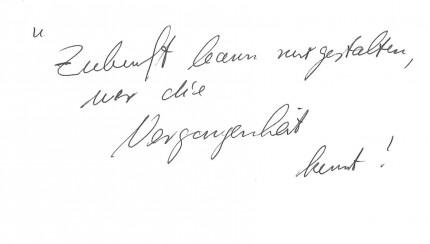 "Zukunft kann nur gestalten,
wer die
Vergangenheit
kennt!